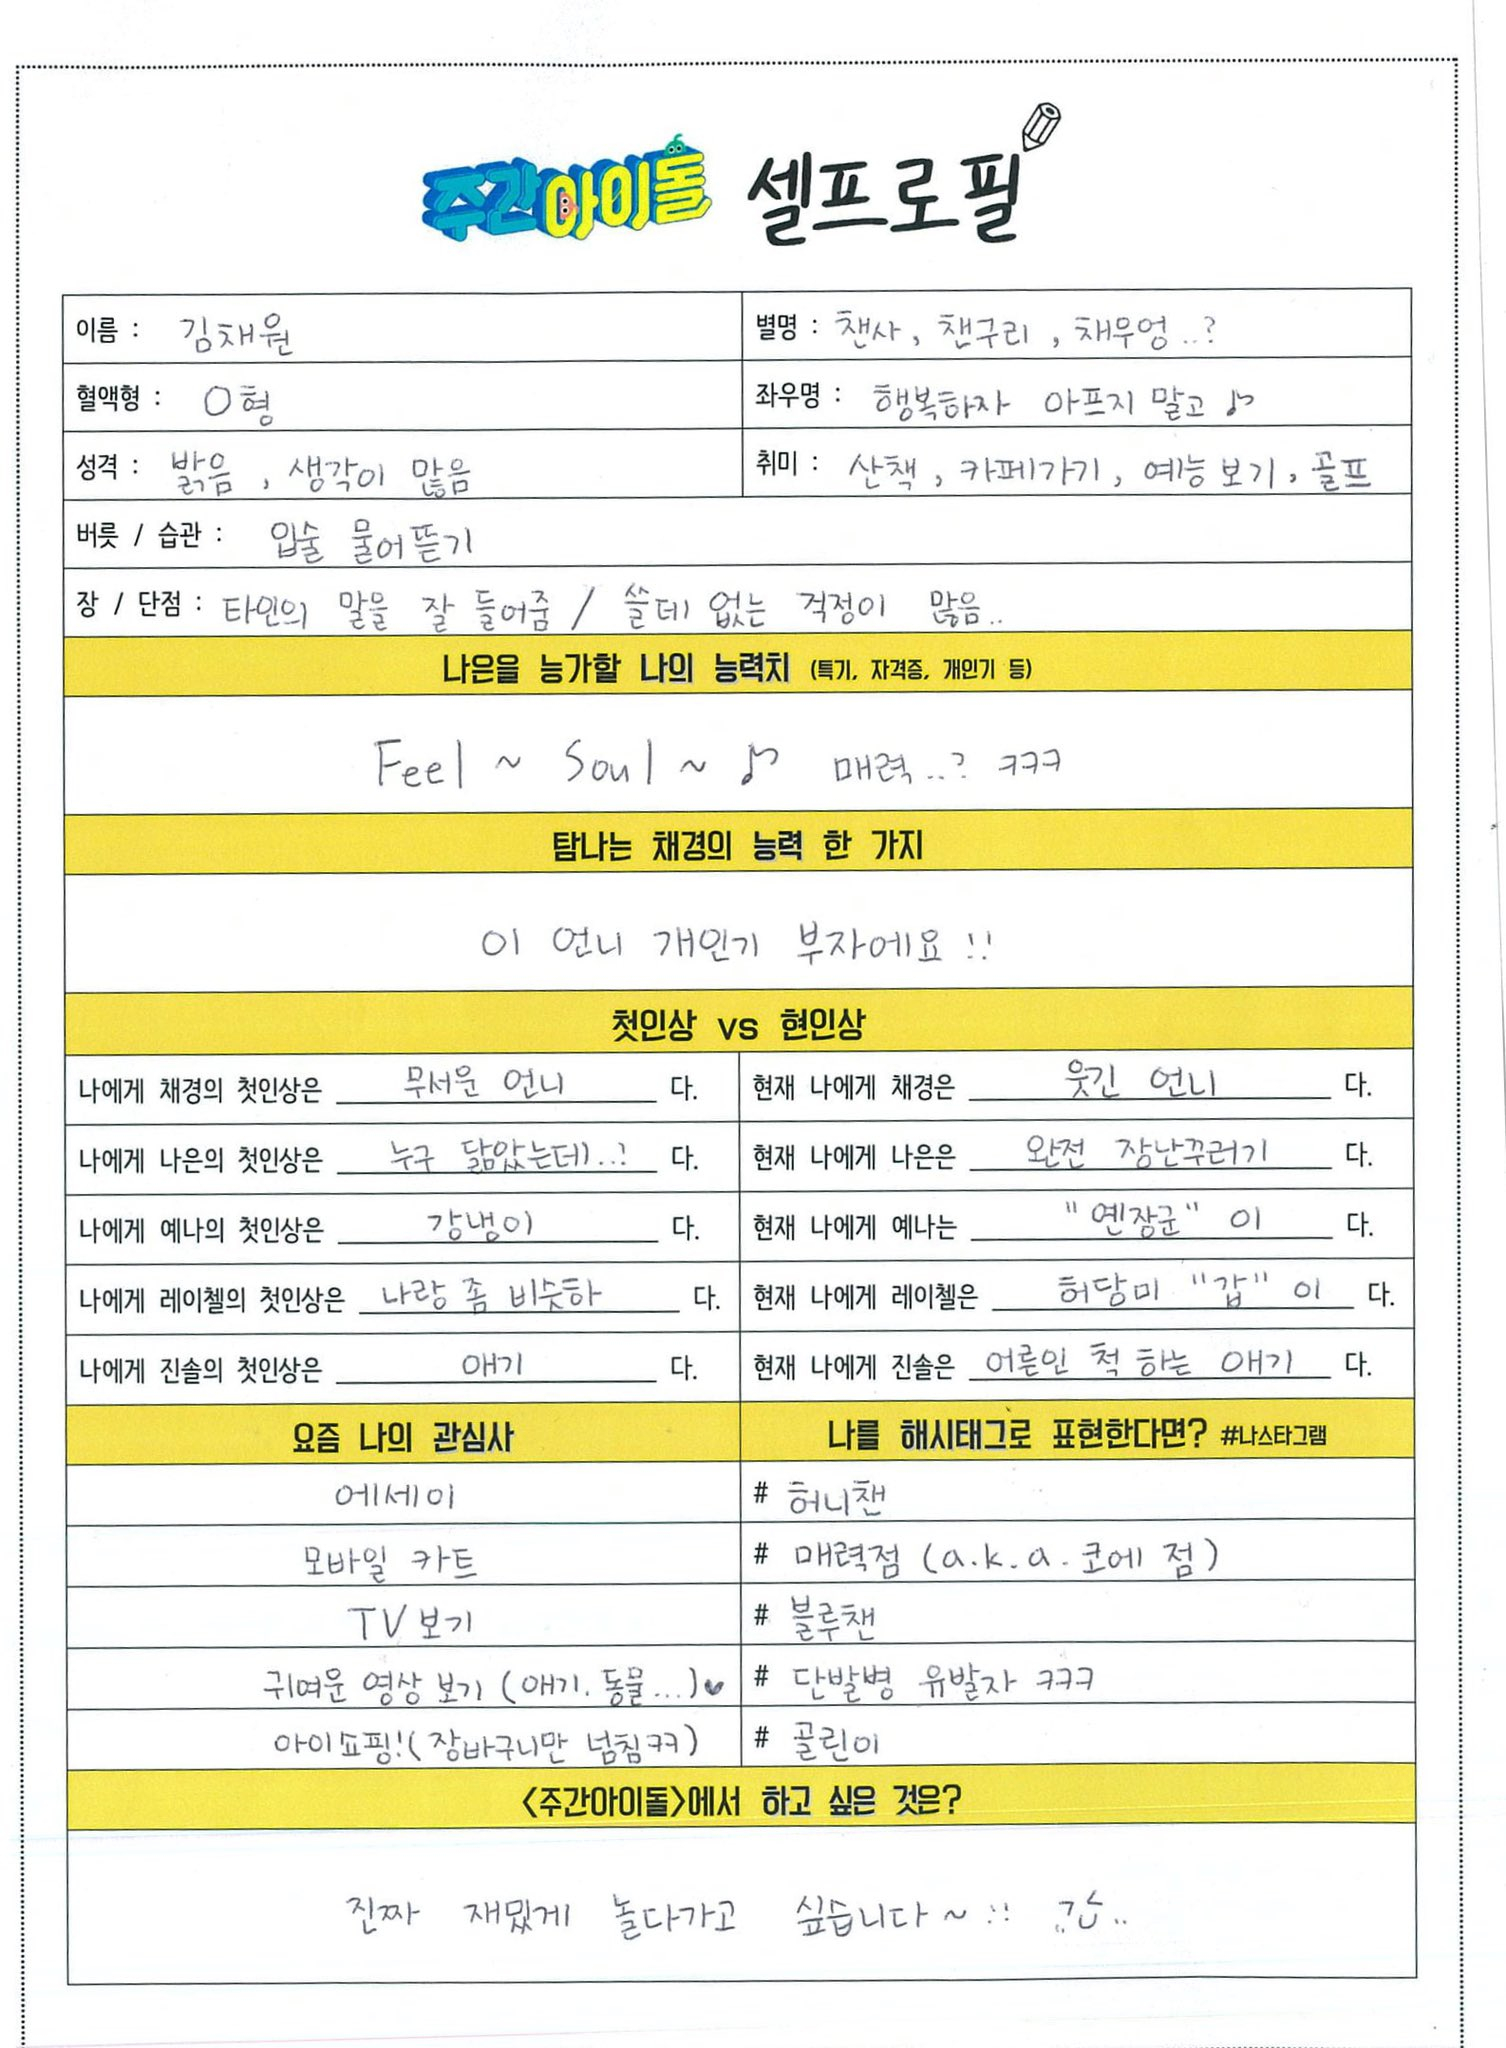 주간아이돌 셀프로필
이름 : 김채원
별명 : 챈사, 챈구리, 채우엉..?
혈액형 : O형
좌우명 : 행복하자 아프지 말고 ♪
성격 : 밝음, 생각이 많음
취미 : 산책, 카페가기, 예능 보기, 골프
버릇 / 습관 : 입술 물어뜯기
장 / 단점 : 타인의 말을 잘 들어줌 / 쓸데 없는 걱정이 많음..
나은을 능가할 나의 능력치 (특기, 자격증, 개인기 등)
Feel ~ Soul ~ ♪ 매력..? ㅋㅋㅋ
탐나는 채경의 능력 한 가지
이 언니 개인기 부자에요 !!
첫인상 vs 현인상
나에게 채경의 첫인상은 무서운 언니 다.
현재 나에게 채경은 웃긴 언니 다.
나에게 나은의 첫인상은 누구 닮았는데..? 다.
현재 나에게 나은은 완전 장난꾸러기 다.
나에게 예나의 첫인상은 강냉이 다.
현재 나에게 예나는 "옌장군" 이 다.
나에게 레이첼의 첫인상은 나랑 좀 비슷하 다.
현재 나에게 레이첼은 허당미 "갑" 이 다.
나에게 진솔의 첫인상은 애기 다.
현재 나에게 진솔은 어른인 척 하는 애기 다.
요즘 나의 관심사
나를 해시태그로 표현한다면? #나스타그램
에세이
# 허니챈
모바일 카트
# 매력점 (a.k.a. 코에 점)
TV 보기
# 블루챈
귀여운 영상 보기 (애기. 동물...)♥
# 단발병 유발자 ㅋㅋㅋ
아이쇼핑!(장바구니만 넘침ㅋㅋ)
# 골린이
<주간아이돌>에서 하고 싶은 것은?
진짜 재밌게 놀다가고 싶습니다 ~ !!